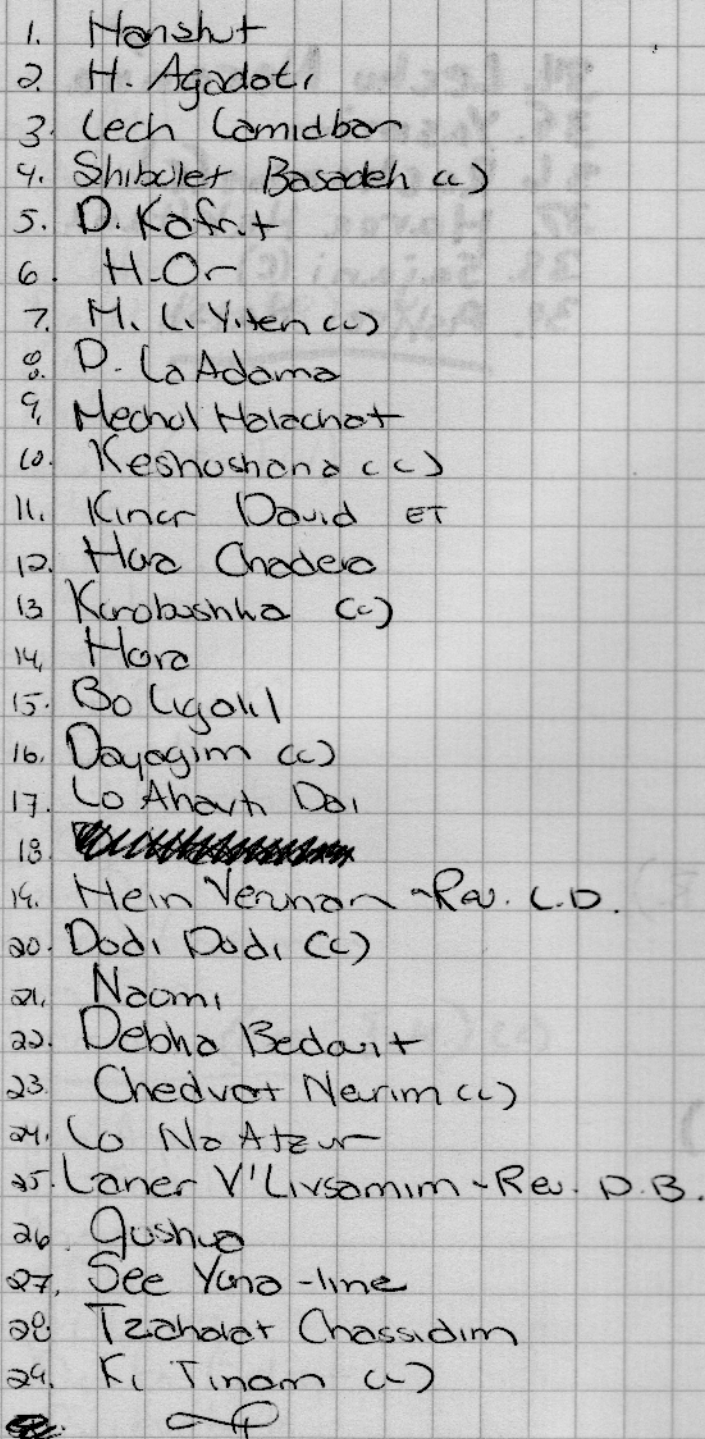 1. Honshut
2. H. Agadoti
3. Lech Lamidbar
4. Shibolet Basadeh (c)
5. D. Kafrit
6. H. Or
7. M. Li Yiten (c)
8. D. La Adama
9. Mechol Halachat
10. Keshoshana (c)
11. Kinor David ET
12. Hora Chadera
13 Korobushka (c)
14, Hora
15. Bo Ligalil
16. Dayagim (c)
17. Lo Ahavti Dai
18.
19. Hein Yerunan - Rev. L.D.
20. Dodi Dodi (c)
21, Naomi
22. Debka Bedouit
23. Chedvat Neurim (c)
24. Lo Na Atzur
25. Laner V'Livsamim - Rev. D.B.
26. Joshua
27, See Yuna - line
28. Tzahalat Chassidim
29. Ki Tinam (c)